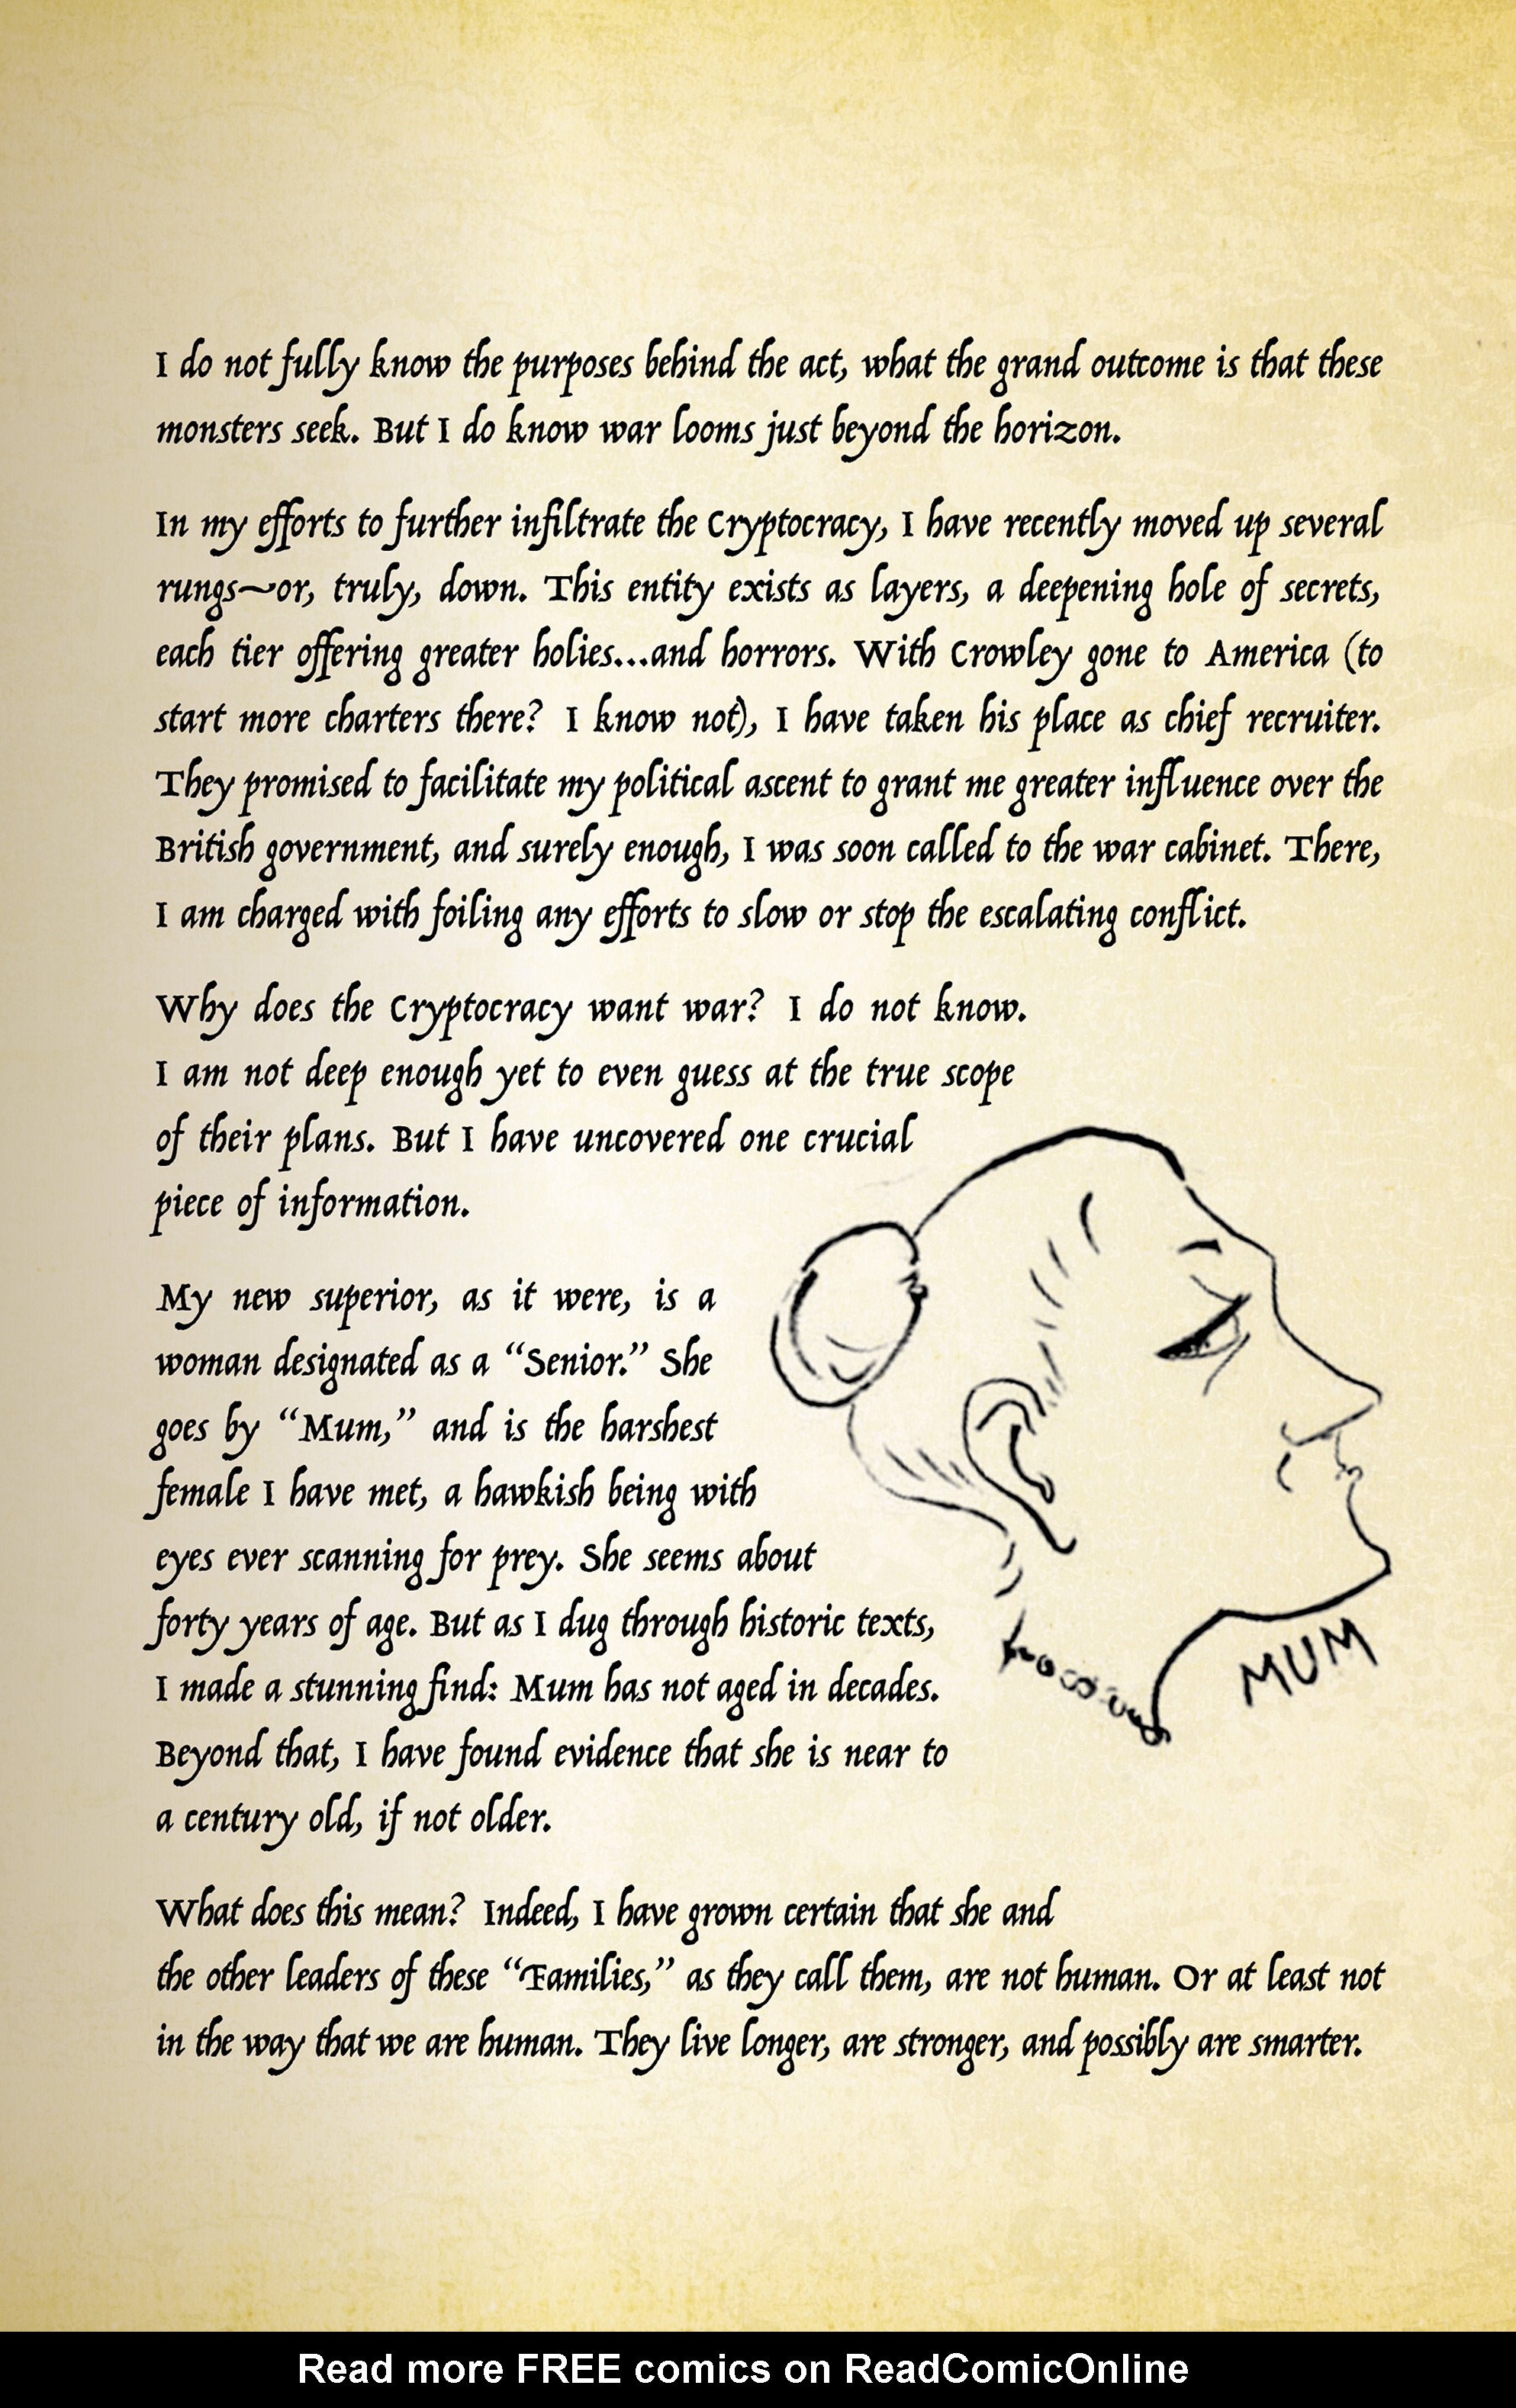 I do not fully know the purposes behind the act, what the grand outcome is that these
monsters seek. But I do know war looms just beyond the horizon.
In my efforts to further infiltrate the Cryptocracy, I have recently moved up several
rungs—or, truly, down. This entity exists as layers, a deepening hole of secrets,
each tier offering greater holies...and horrors. With Crowley gone to America (to
start more charters there? I know not), I have taken his place as chief recruiter.
They promised to facilitate my political ascent to grant me greater influence over the
British government, and surely enough, I was soon called to the war cabinet. There,
I am charged with foiling any efforts to slow or stop the escalating conflict.
Why does the Cryptocracy want war? I do not know.
I am not deep enough yet to even guess at the true scope
of their plans. But I have uncovered one crucial
piece of information.
My new superior, as it were, is a
woman designated as a “Senior.” She
goes by “Mum,” and is the harshest
female I have met, a hawkish being with
eyes ever scanning for prey. She seems about
forty years of age. But as I dug through historic texts,
I made a stunning find: Mum has not aged in decades.
Beyond that, I have found evidence that she is near to
a century old, if not older.
MUM
What does this mean? Indeed, I have grown certain that she and
the other leaders of these “Families,” as they call them, are not human. Or at least not
in the way that we are human. They live longer, are stronger, and possibly are smarter.
Read more FREE comics on ReadComicOnline